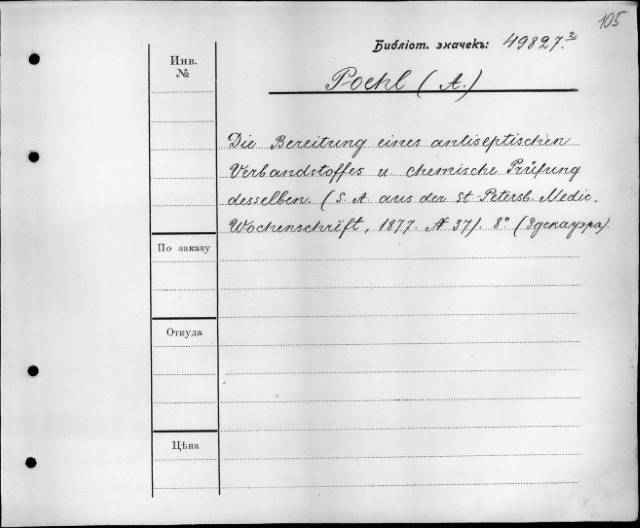 105
Библіот. значекъ: 49827.²
Инв.
№
Poehl (A.)
Die Bereitung eines antiseptischen
Verbandstoffes u. chemische Prüfung
desselben. (S. A. aus der St Petersb. Medic.
Wochenschrift, 1877. N 37). 8° (Здекауэра).
По заказу
Откуда
Цѣна